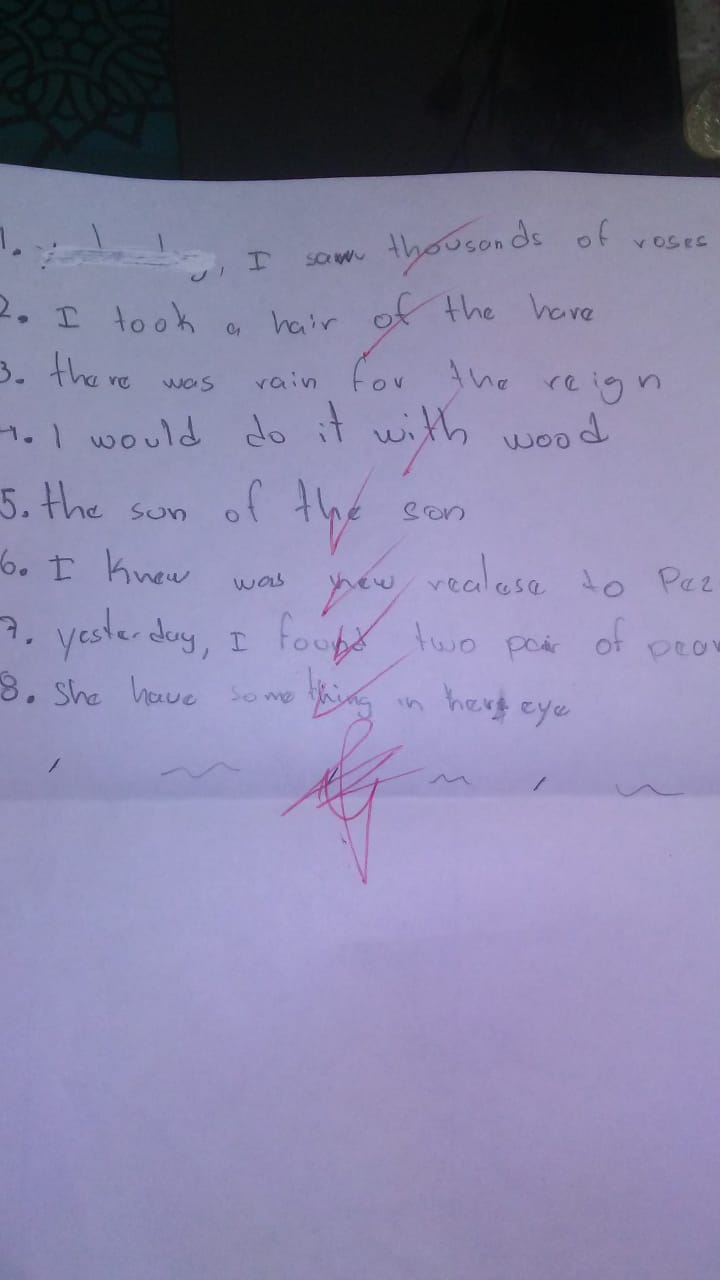 1. , I saw thousands of roses
2. I took a hair of the hare
3. there was rain for the reign
4. I would do it with wood
5. the sun of the son
6. I knew was new realese to
7. yesterday, I found two pair of
8. she have something in her eye